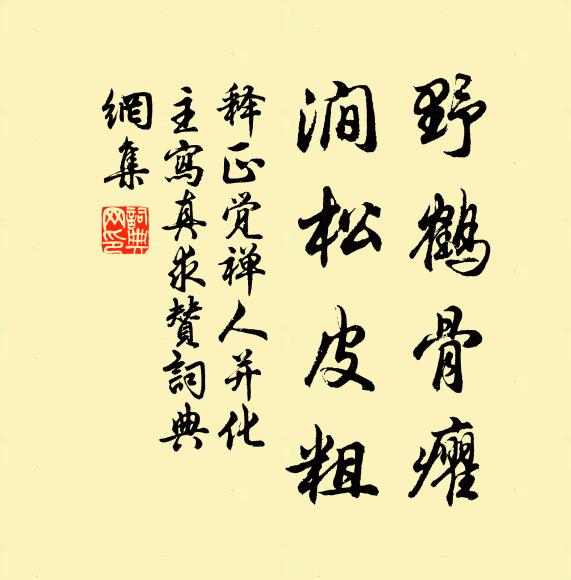 野鹤骨癯
涧松皮粗
释正觉禅人并化
主写真求赞词典
网集
词典网印